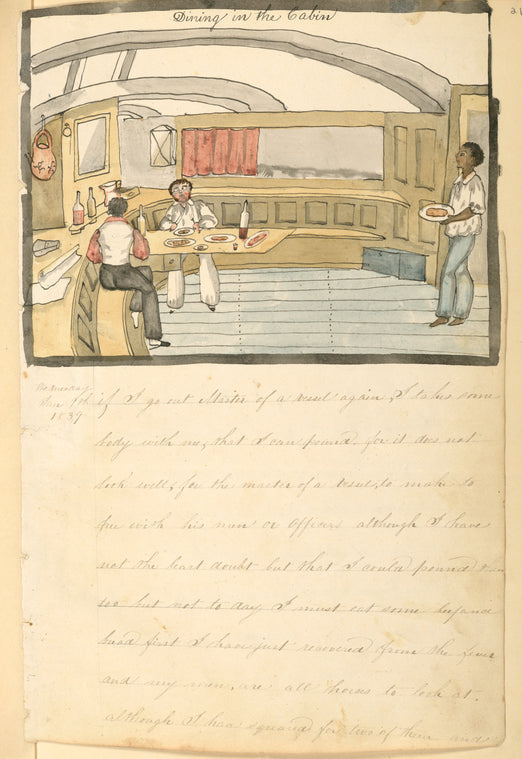 Dining in the Cabin
Wednesday
Jan 9th
1839
if I go out Master of a vessel again, I takes some
body with me, that I can pound. for it does not
look well, for the master of a vessel, to make so
free with his men or Officers although I have
not the least doubt but that I could pound
too but not to day I must eat some and
bread first I have just recovered from the fever
and my men, are all to look at.
although I had squared for two of them and